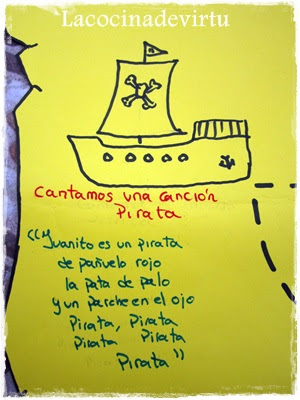 Lacocinadevirtu
Cantamos una canción
Pirata
"Juanito es un pirata
de pañuelo rojo
la pata de palo
y un parche en el ojo
Pirata, Pirata
Pirata Pirata
Pirata"